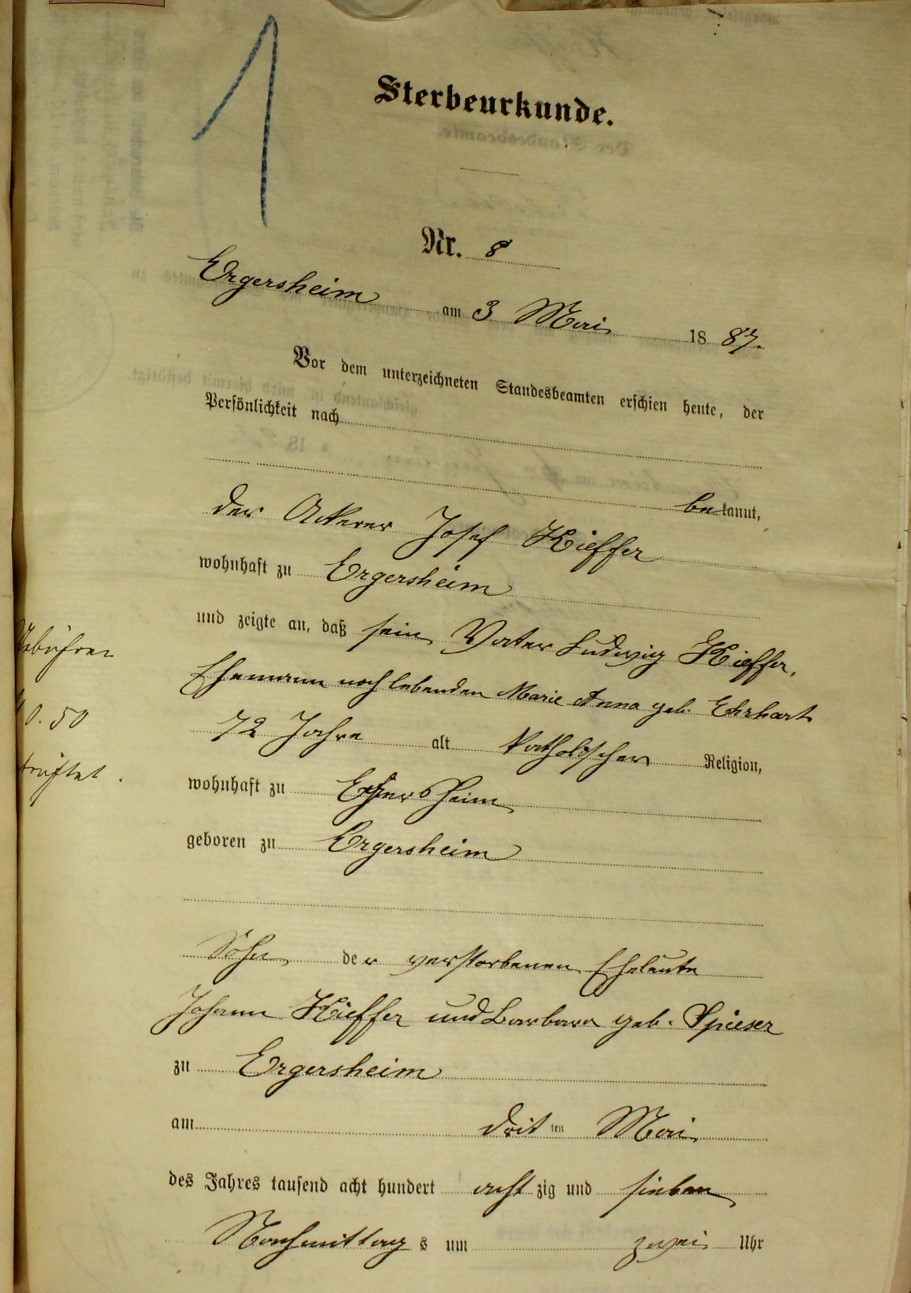 1
Sterbeurkunde.
Nr. 8
Ergersheim am 3 Mai 1887.
Vor dem unterzeichneten Standesbeamten erschien heute, der
Persönlichkeit nach
bekannt,
der Ackerer Josef Kieffer
wohnhaft zu Ergersheim
und zeigte an, daß sein Vater Ludwig Kieffer,
Ehemann noch lebenden Marie Anna geb. Ehrhart
72 Jahre alt katholischer Religion,
wohnhaft zu Ergersheim
geboren zu Ergersheim
Sohn der verstorbenen Eheleute
Johann Kieffer und Barbara geb. Spieser
zu Ergersheim
am dritten Mai
des Jahres tausend acht hundert achtzig und sieben
Nachmittags um zwei Uhr
0.50